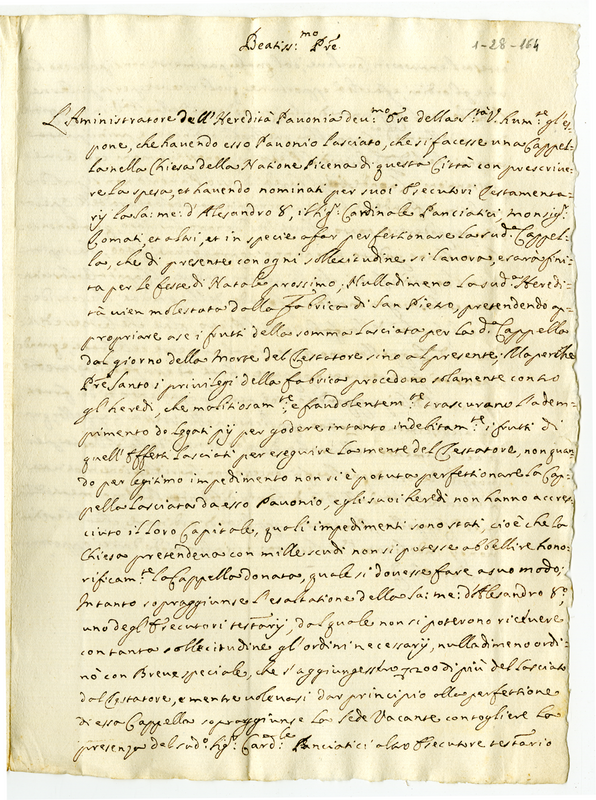 Beatiss:mo Pre
1-28-164
L'Aministratore dell'Heredità Pauonia deu:mo Ore della S.tà V. hum:te gl'es-
pone, che hauendo esso Pauonio lasciato, che si facesse una Cappel-
la nella Chiesa della Natione Picena di questa Città con prescriue-
re la spesa, et hauendo nominati per suoi Esecutori Testamenta-
rij la sa: me: d'Alesandro 8, il Sig.r Cardinale Panciatici, Monsig.r
et altri, et in specie a far perfettionare la sud.a Cappel-
la, che di presente con ogni sollecitudine si lauora, e sarà fini-
ta per le feste di Natale prossimo, Nulladimeno la sud.a Heredi-
tà uien molestata dalla Fabrica di San Pietro, pretendendo ap-
propriare a se i frutti della somma lasciata per la d.a Cappella
dal giorno della Morte del Testatore sino al presente; Ma perche
Pre Santo i priuilegi della fabrica procedono solamente contro
gl'heredi, che malitiosam:te, e fraudolentem:te trascurano l'adem-
pimento de legati pij per godere intanto indebitam:te i frutti di
quell'Effetti lasciati per eseguire la mente del Testatore, non quan-
do per legitimo impedimento non si è potuta perfettionare la Cap-
pella lasciata da esso Pauonio, e gli suoi heredi non hanno accres-
ciuto il loro Capitale, quali impedimenti sono stati, cioè che la
Chiesa pretendeua con mille scudi non si potesse abbellire hono-
rificam:te la Cappella donata, quale si douesse fare a suo modo;
Intanto sopraggiunse l'esaltatione della sa: me: d'Alesandro 8.o,
uno degl'Esecutori test.rij, dal quale non si poterono riceuere
con tanta sollecitudine gl'ordini necessarij, nulladimeno ordi-
nò con Breue speciale, che s'aggiungessero 200 di più del lasciato
dal Testatore, e mentre uoleuasi dar principio alla perfettione
di essa Cappella sopraggiunse la Sede Vacante con togliere la
presenza del sud.o Sig.r Card:le Panciatici altro Esecutore test:rio